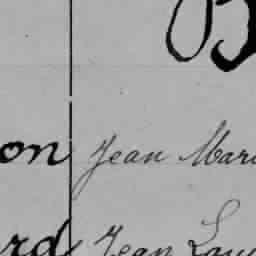 B
on Jean Mari
rd Jean Lou